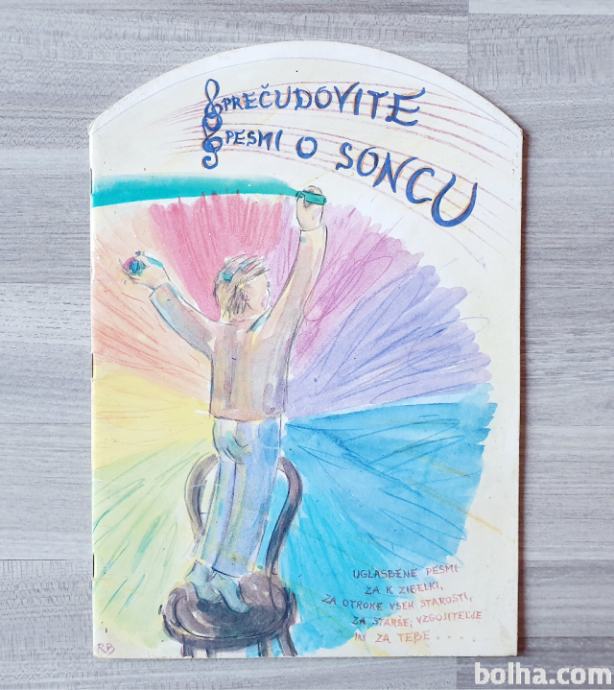 PREČUDOVITE
PESMI O SONCU
UGLASBENE PESMI
ZA K ZIBELKI,
ZA OTROKE VSEH STAROSTI,
ZA STARŠE, VZGOJITELJE
IN ZA TEBE....
RB
bolha.com